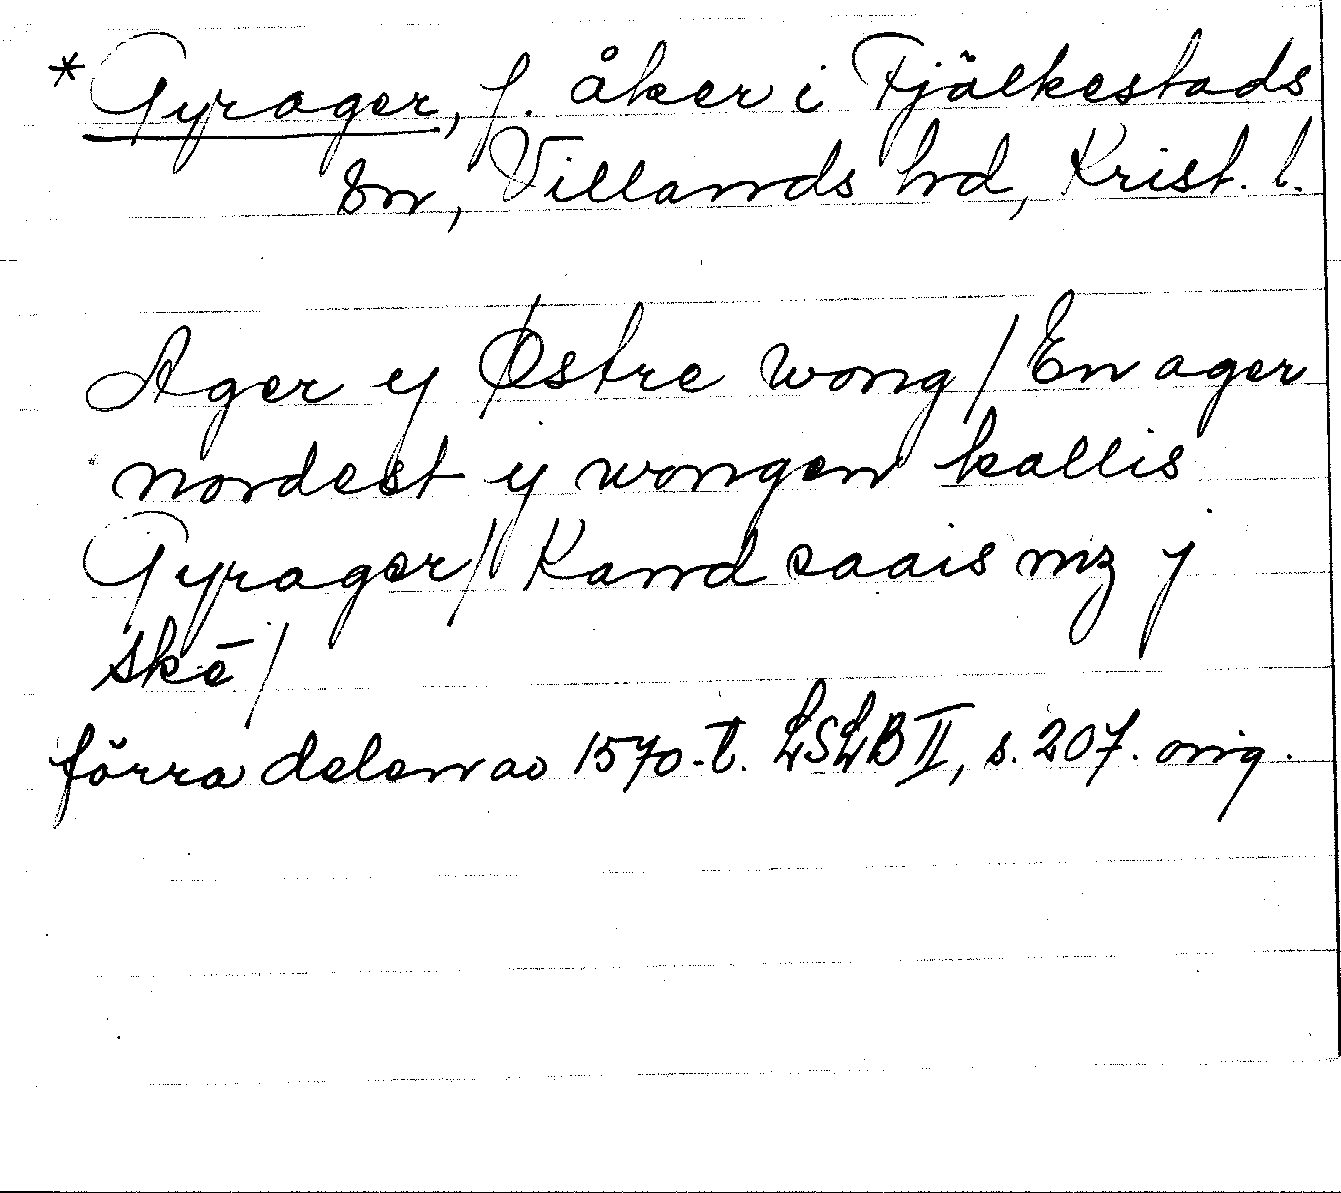 * Gyrager, f. åker i Fjälkestads
sn, Villands hd, Krist. l.
Ager y Østre wong / En ager
nordest y wongen kallis
Gyrager / Kand saais mz j
skē /
förra delen av 1570-t. LSLB II, s. 207. orig.